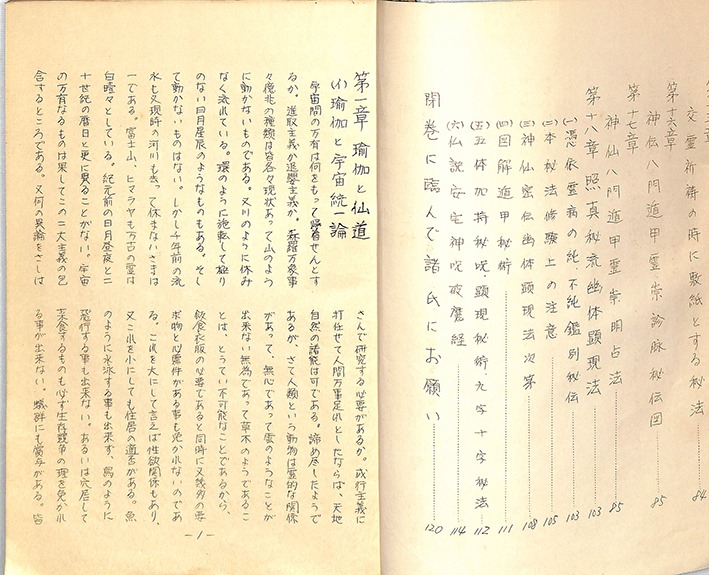 第十五章
交霊祈祷の時に敷紙とする秘法 84
第十六章
神伝八門遁甲霊祟診脉秘伝図 85
第十七章
神仙八門遁甲霊祟明占法 85
第十八章 照真秘流幽体顕現法 103
(一)憑依霊病の純、不純鑑別秘伝 103
(二)本秘法修験上の注意 105
(三)神仙密伝幽体顕現法次第 108
(四)図解遁甲秘術 111
(五)五体加持秘呪、顕現秘術、九字十字秘法 112
(六)仏説安宅神呪破魔経 114
閉巻に臨んで諸氏にお願い 120
第一章 瑜伽と仙道
(イ)瑜伽と宇宙統一論
宇宙間の万有は何をもって帰着せんとす
るか、進取主義か退嬰主義か。森羅万象事
々億兆の種類は皆各々現状あって山のよう
に動かないものである。又川のように休み
なく流れている。環のように施転して極り
のない日月星辰のようなものもある。そし
て動かないものはない。しかし千年前の流
水も又現時の河川も去って休まないさまは
一である。富士山、ヒマラヤも万古の雪は
白皚々としている。紀元前の日月昼夜と二
十世紀の暦日と更に異ることがない。宇宙
の万有なるものは果してこの二大主義の包
含するところである。又何の異論をさしは
さんで研究する心要があるか。或行主義に
打任せて人間万事足れりとしたならば、天地
自然の諸能は可である。諦め尽したようで
あるが、さて人類という動物は霊的な関係
があって、無心であって雲のようなことが
出来ない無為であって草木のようであるこ
とは、とうてい不可能なことであるから、
飲食衣服の心要であると同時に又幾多の要
求物と心霊件がある事も免かれないのであ
る。これを大にして言えば性欲関係もあり、
又これを小にしても住居の適否がある。魚
のように水泳する事も出来ず、鳥のように
飛行する事も出来ない。あるいは穴居して
菜食するものも必ず生存競争の理を免かれ
る事が出来ない。蟻群にも貧与がある。皆
-1-